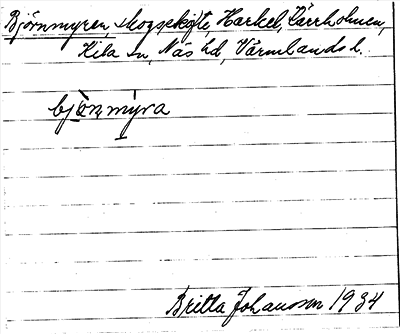 Björnmyren, skogsskifte, Harkel, Kärrholmen,
Kila sn, Näs hd, Värmlands l.
bjö̀rnmýra
Britta Johansson 1934